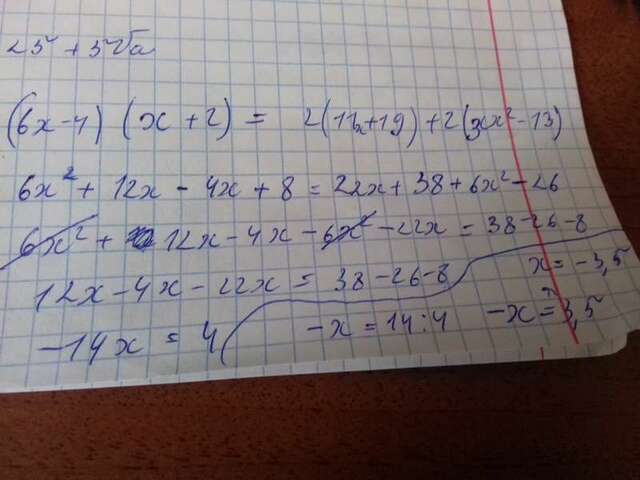 (6x-4) (x+2) = 2(11x+19)+2(3x²-13)
6x² + 12x - 4x + 8 = 22x + 38 + 6x² - 26
6x² + 12x - 4x - 6x² - 22x = 38 - 26 - 8
12x - 4x - 22x = 38 - 26 - 8
x = -3,5
-14x = 4
-x = 14:4
-x = 3,5